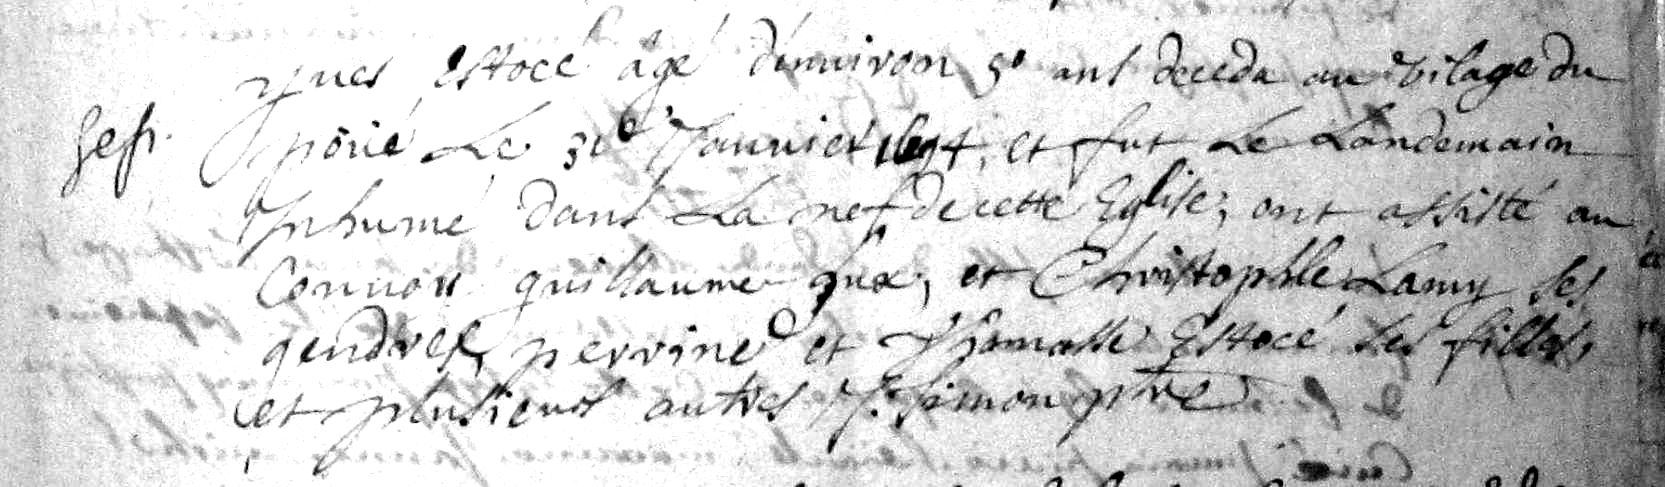 yues Estocé âgé d'enuiron 50 ans deceda au vilage du
poüé Le 31e Januier 1694, et fut Le Landemain
Inhumé dans La nef de cette Eglise; ont assisté au
Conuoy guillaume et Christophle Lamy ses
gendres, perrine et Thomasse Estocé ses filles,
et plusieurs autres J. Simon ptre